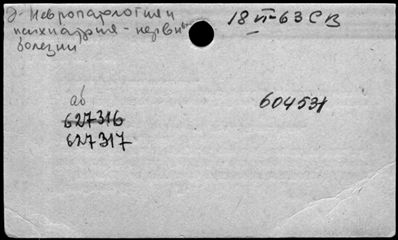 Э-Невропатология и 18 VI-63 СВ
психиатрия - нервные
болезни
ав
627316 604531
627317